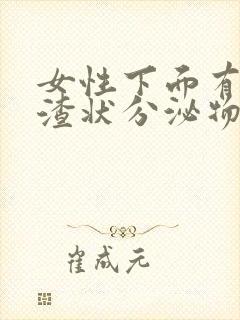 女性下面有
渣状分泌物
崔成元